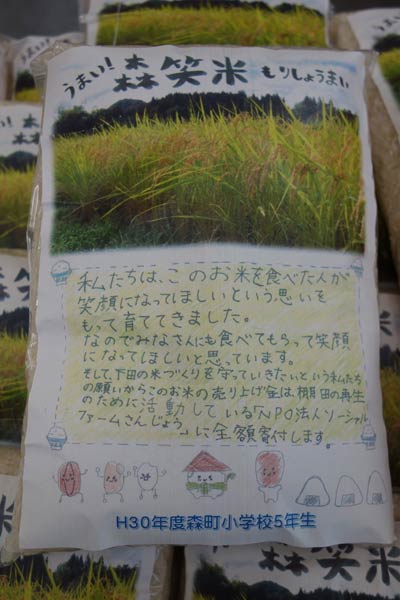 うまい!森笑米もりしょうまい
私たちは、このお米を食べた人が
笑顔になってほしいという思いを
もって育ててきました。
なのでみなさんにも食べてもらって笑顔
になってほしいと思っています。
そして、下田の米づくりを守っていきたいという私たち
の願いからこのお米の売り上げ金は、棚田の再生
のために活動している「NPO法人ソーシャル
ファームさんじょう」に全額寄付します。
H30年度森町小学校5年生